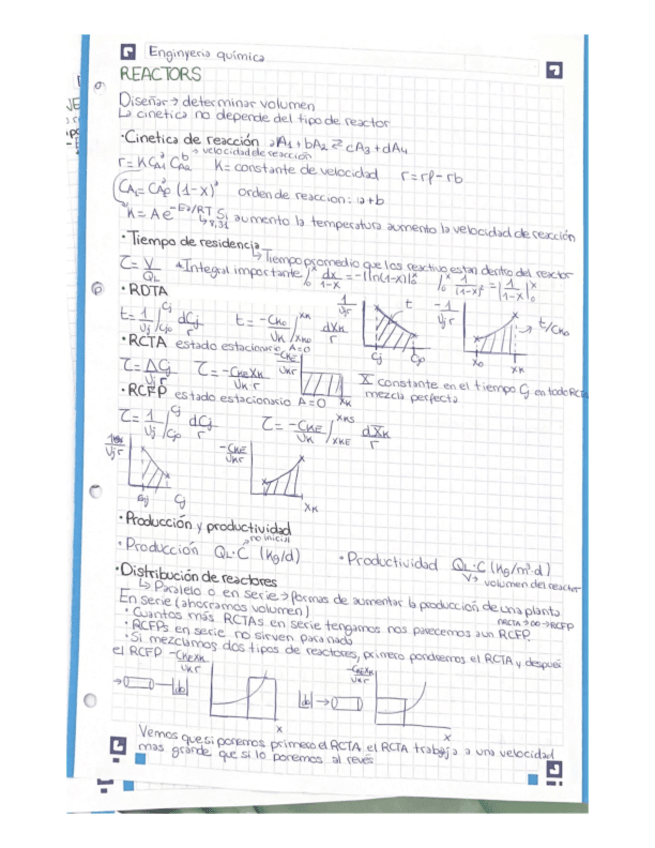 Enginyeria química
REACTORS
Diseñar → determinar volumen
↳ cinetica no depende del tipo de reactor
• Cinetica de reacción aA1 + bA2 ⇄ cA3 + dA4
→ velocidad de reacción
r = K CA1^a CA2^b K = constante de velocidad r = rp - rb
CA1 = CA0 (1-x) orden de reaccion: a+b
K = A e^-Ea/RT Si aumento la temperatura aumento la velocidad de reacción
↳ 8,31
• Tiempo de residencia
↳ Tiempo promedio que los reactivo estan dentro del reactor
τ = V/QL * Integral importante ∫0^x dx/1-x = -[ln(1-x)]0^x ∫0^x 1/(1-x)² = |1/1-x|0^x
• RDTA
t = 1/υj ∫Cj0^Cj dCj/r t = -CK0/υK ∫XK0^XK dXK/r
1/υjr t Cj Cj0
-1/υjr X0 XK t/CK0
• RCTA estado estacionario A=0
τ = ΔCj/υj r τ = -CKE XK/υK r
-CKE/υKr XK
X constante en el tiempo Cj en todo RCTA
mezcla perfecta
• RCFP estado estacionario A=0
τ = 1/υj ∫Cj0^Cj dCj/r τ = -CKE/υK ∫XKE^XKS dXK/r
υjr Cj
-CKE/υKr XK
• Producción y productividad
→ no inicial
• Producción QL·C (Kg/d) • Productividad QL·C/V (Kg/m³·d)
→ volumen del reactor
• Distribución de reactores
↳ Paralelo o en serie → formas de aumentar la producción de una planta
En serie (ahorramos volumen)
nRCTA → ∞ → RCFP
• Cuantos más RCTAs en serie tengamos nos parecemos a un RCFP
• RCFPs en serie no sirven para nada
• Si mezclamos dos tipos de reactores, primero pondremos el RCTA y despues
el RCFP
-CKEXK/υKr X
-CKEXK/υKr X
Vemos que si ponemos primero el RCTA el RCTA trabaja a una velocidad
mas grande que si lo ponemos al revés